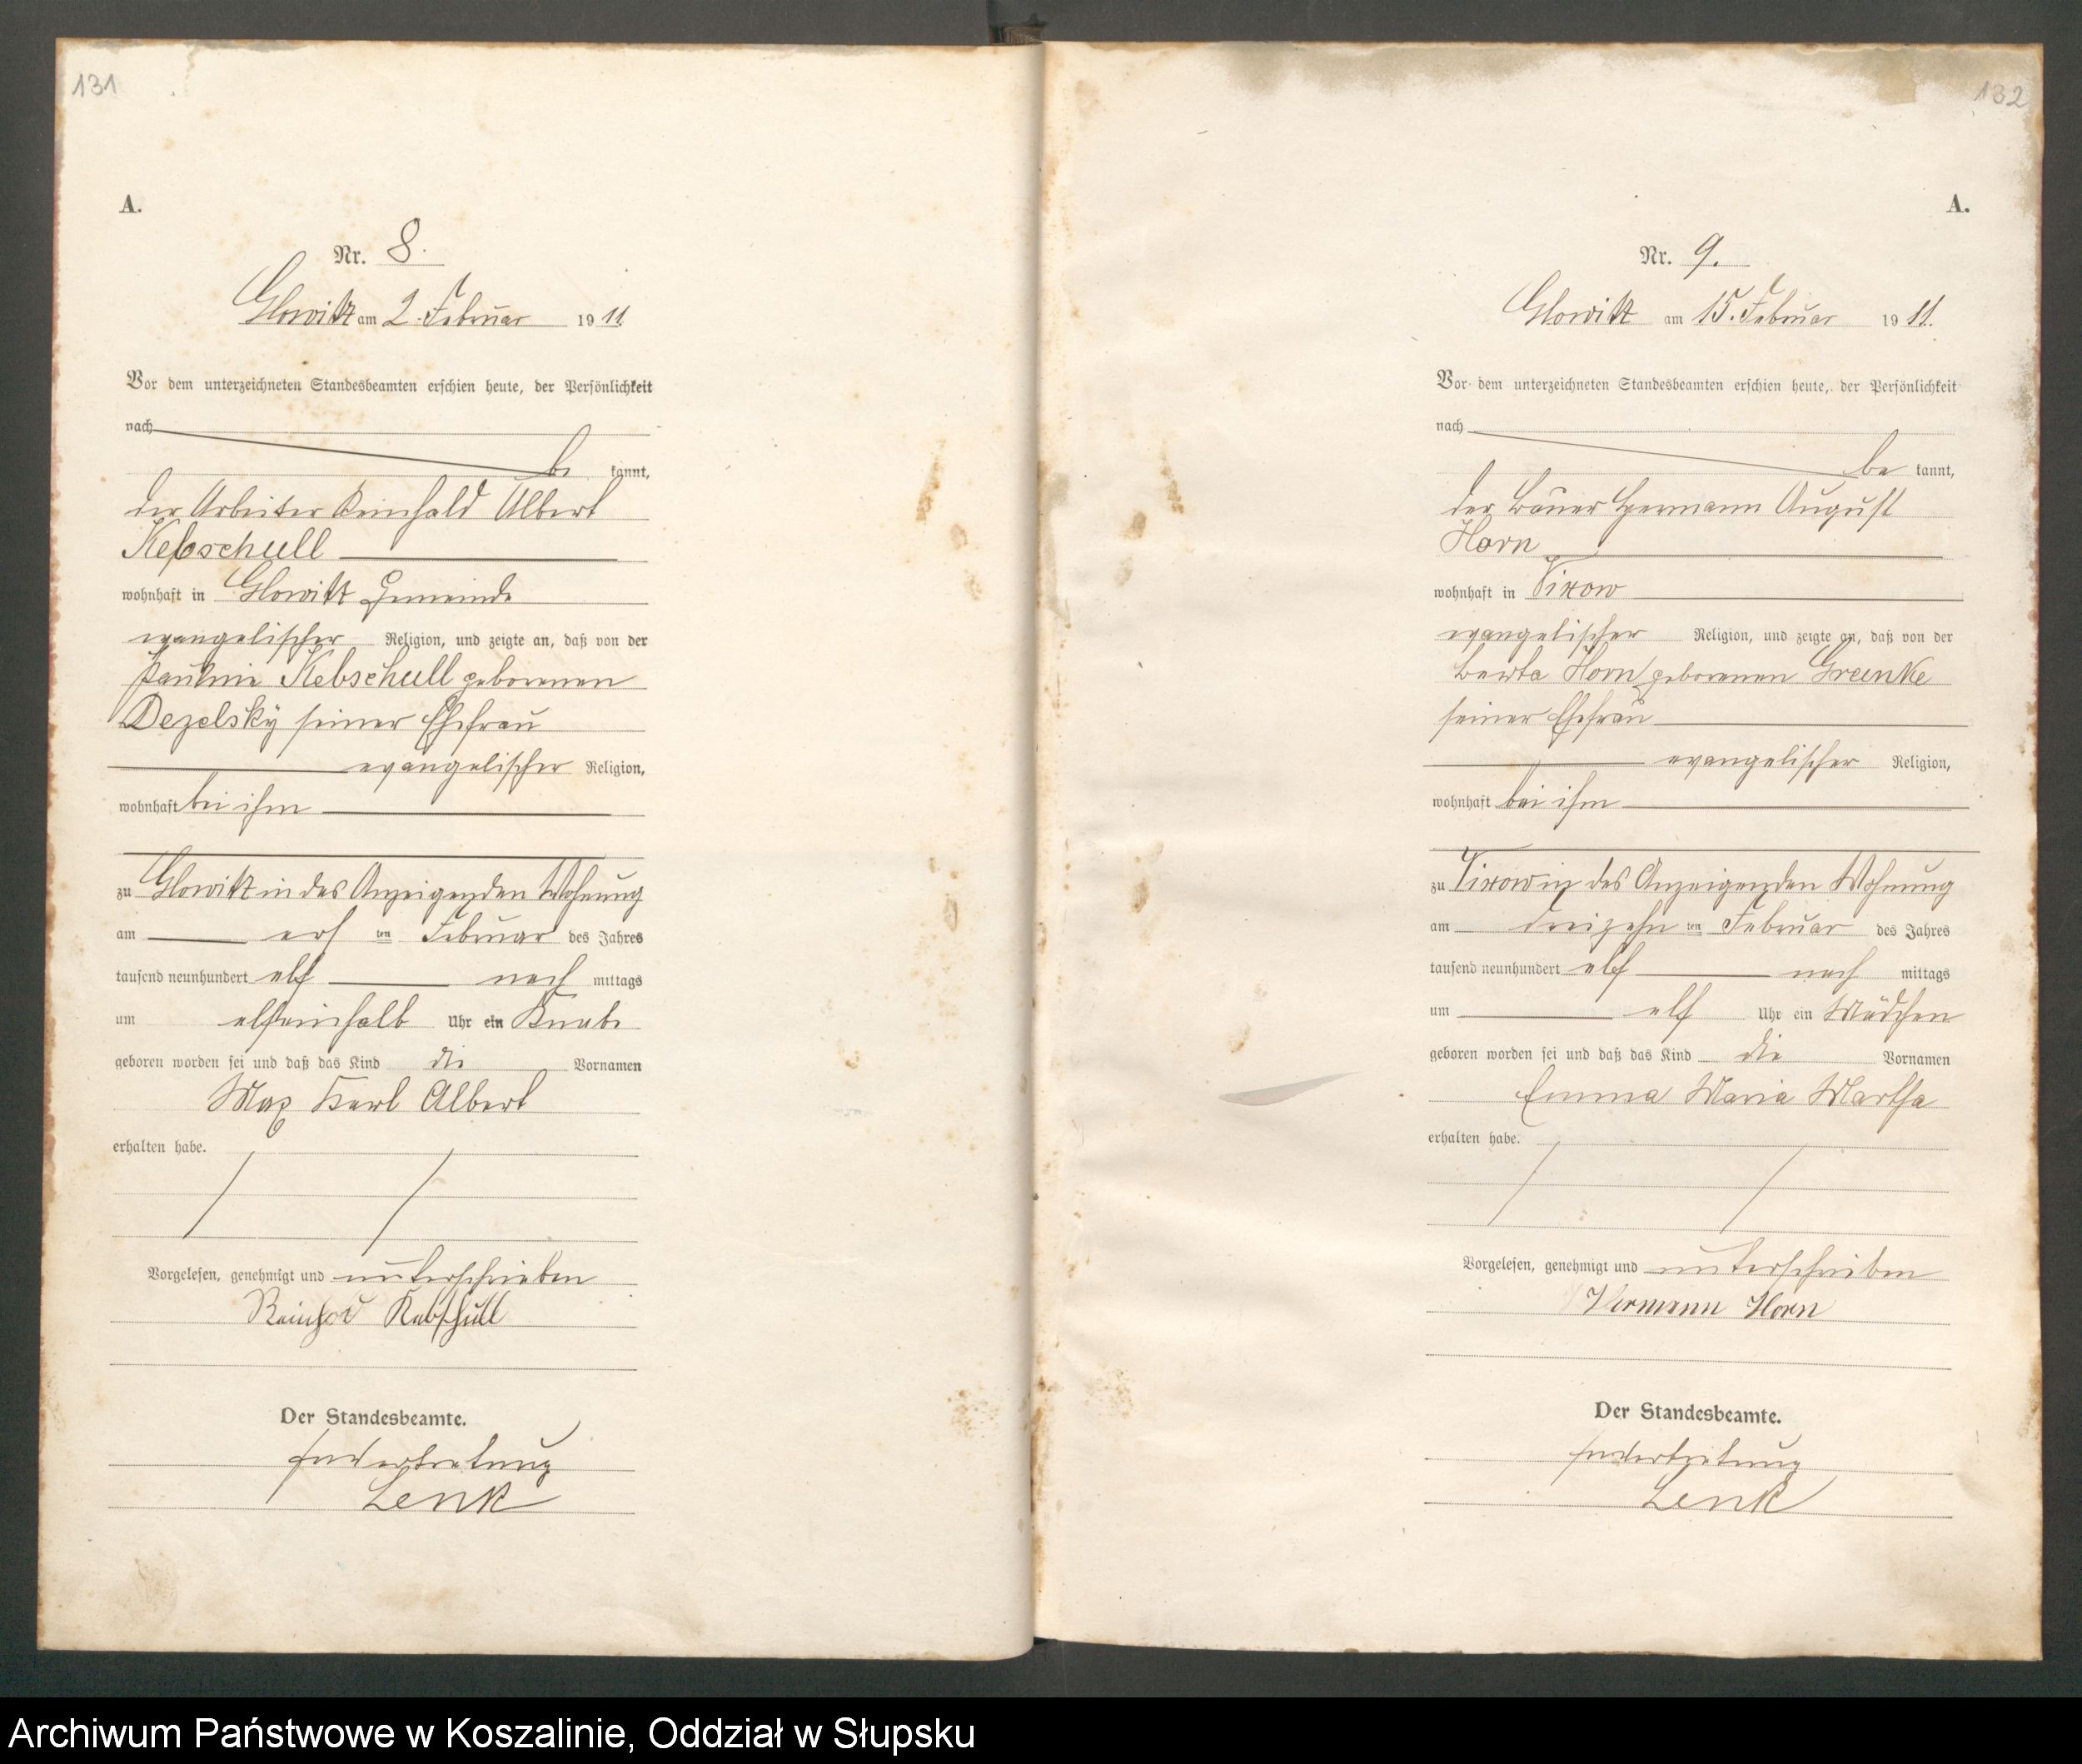 131
A.
Nr. 8.
Glowitz am 2. Februar 1911.
Vor dem unterzeichneten Standesbeamten erschien heute, der Persönlichkeit
nach
be kannt,
der Arbeiter Reinhold Albert
Kebschull
wohnhaft in Glowitz Gemeinde
evangelischer Religion, und zeigte an, daß von der
Pauline Kebschull geborenen
Dezelsky seiner Ehefrau
evangelischer Religion,
wohnhaft bei ihm
zu Glowitz in des Anzeigenden Wohnung
am ersten Februar des Jahres
tausend neunhundert elf nach mittags
um elfeinhalb Uhr ein Knabe
geboren worden sei und daß das Kind die Vornamen
Max Karl Albert
erhalten habe.
Vorgelesen, genehmigt und unterschrieben
Reinhold Kebschull
Der Standesbeamte.
In Vertretung
Lenk
132
A.
Nr. 9.
Glowitz am 15. Februar 1911.
Vor dem unterzeichneten Standesbeamten erschien heute, der Persönlichkeit
nach
be kannt,
der Bauer Hermann August
Horn
wohnhaft in Vixow
evangelischer Religion, und zeigte an, daß von der
Berta Horn geborenen Greinke
seiner Ehefrau
evangelischer Religion,
wohnhaft bei ihm
zu Vixow in des Anzeigenden Wohnung
am dreizehnten Februar des Jahres
tausend neunhundert elf nach mittags
um elf Uhr ein Mädchen
geboren worden sei und daß das Kind die Vornamen
Emma Maria Martha
erhalten habe.
Vorgelesen, genehmigt und unterschrieben
Hermann Horn
Der Standesbeamte.
In Vertretung
Lenk
Archiwum Państwowe w Koszalinie, Oddział w Słupsku